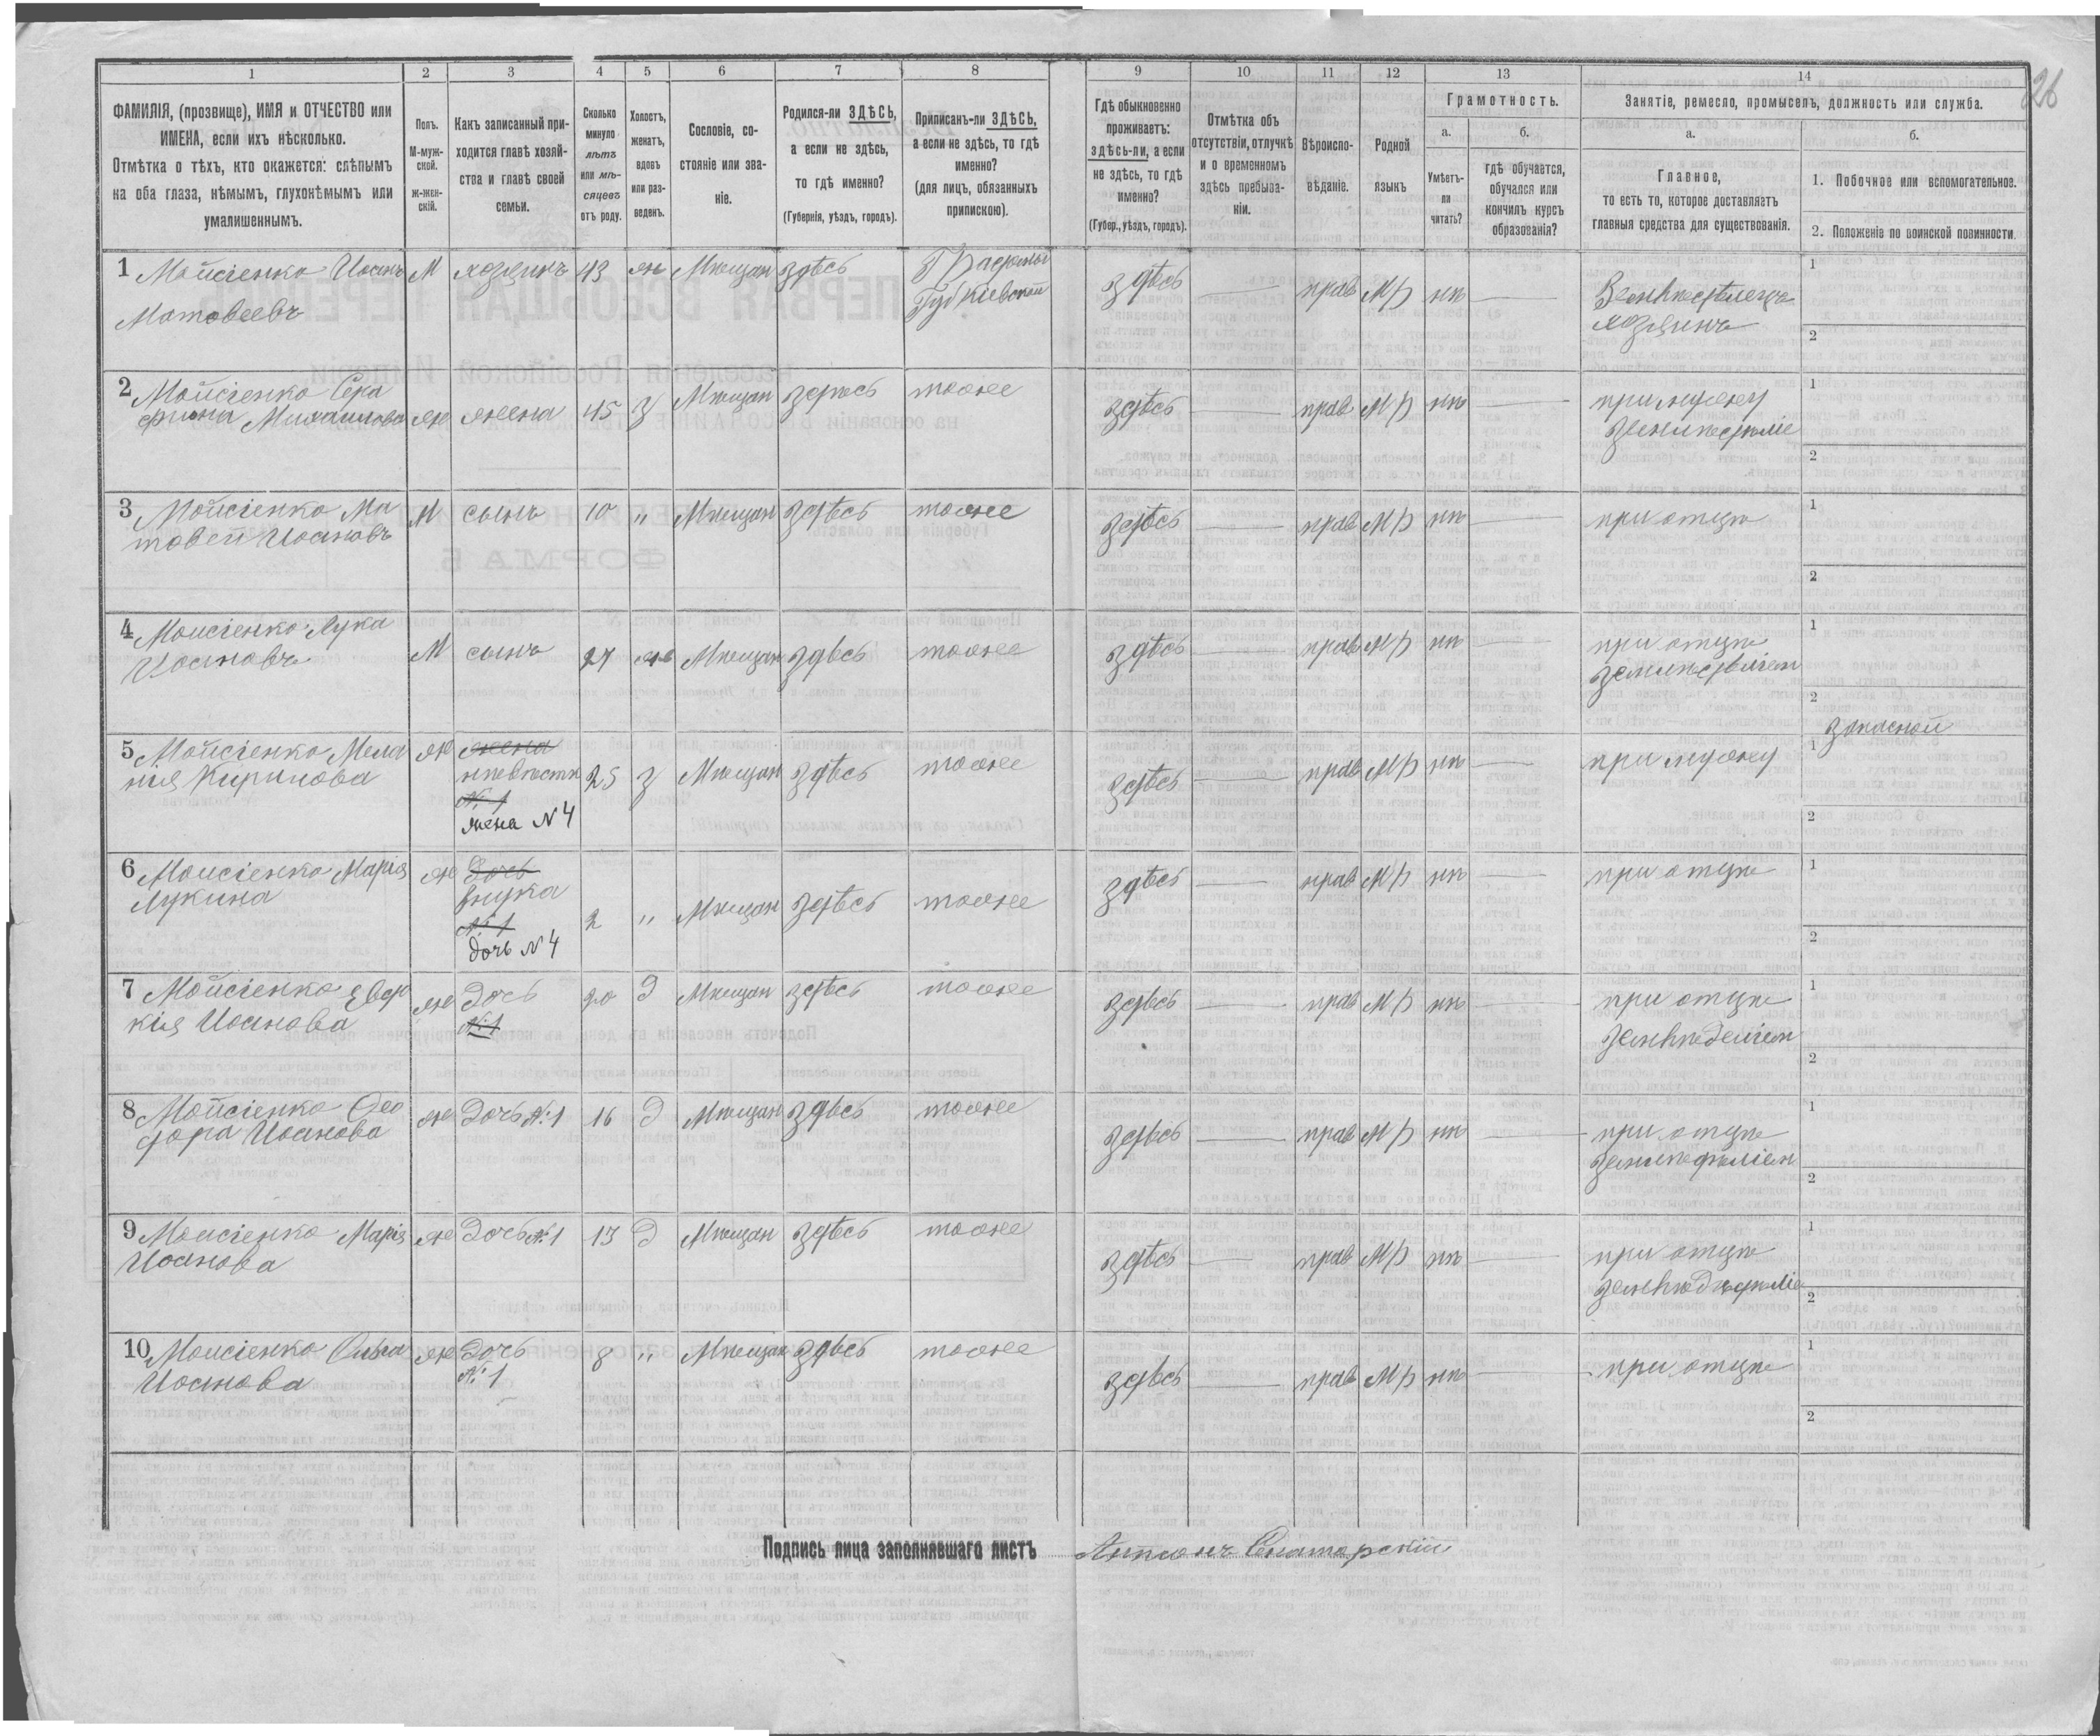 26
1 2 3 4 5 6 7 8 9 10 11 12 13 14
ФАМИЛІЯ, (прозвище), ИМЯ и ОТЧЕСТВО или
ИМЕНА, если ихъ нѣсколько.
Отмѣтка о тѣхъ, кто окажется: слѣпымъ
на оба глаза, нѣмымъ, глухонѣмымъ или
умалишеннымъ.
Полъ.
М-муж-
ской.
ж-жен-
скій.
Какъ записанный при-
ходится главѣ хозяй-
ства и главѣ своей
семьи.
Сколько
минуло
лѣтъ
или мѣ-
сяцевъ
отъ роду.
Холостъ,
женатъ,
вдовъ
или раз-
веденъ.
Сословіе, со-
стояніе или зва-
ніе.
Родился-ли ЗДѢСЬ,
а если не здѣсь,
то гдѣ именно?
(Губернія, уѣздъ, городъ).
Приписанъ-ли ЗДѢСЬ,
а если не здѣсь, то гдѣ
именно?
(для лицъ, обязанныхъ
припискою).
Гдѣ обыкновенно
проживаетъ:
здѣсь-ли, а если
не здѣсь, то гдѣ
именно?
(Губер., уѣздъ, городъ).
Отмѣтка объ
отсутствіи, отлучкѣ
и о временномъ
здѣсь пребыва-
ніи.
Вѣроиспо-
вѣданіе.
Родной
языкъ
Грамотность.
а.
Умѣетъ-
ли
читать?
б.
гдѣ обучается,
обучался или
кончилъ курсъ
образованія?
Занятіе, ремесло, промыселъ, должность или служба.
а.
Главное,
то есть то, которое доставляетъ
главныя средства для существованія.
б.
1. Побочное или вспомогательное.
2. Положеніе по воинской повинности.
1 Мойсіенко Иоанъ М хозяинъ 43 ж Мѣщан здѣсь Губ Кіевской здѣсь — прав М/р нѣ — Земледѣлецъ 1
Матвеевъ хозяинъ 2
2 Мойсіенко Сера ж жена 45 з Мѣщан здѣсь тоже здѣсь — прав М/р нѣ — при мужу 1
фина Михаилова земледѣліе 2
3 Мойсіенко Ма М сынъ 10 " Мѣщан здѣсь тоже здѣсь — прав М/р нѣ — при отцѣ 1
товей Иоановъ 2
4 Моисіенко Лука М сынъ 27 ж Мѣщан здѣсь тоже здѣсь — прав М/р нѣ — при отцѣ 1
Иоановъ земледѣліем 2
запасной
5 Мойсіенко Мела ж жена 25 з Мѣщан здѣсь тоже здѣсь — прав М/р нѣ — при мужу 1
нія Кирилова невѣстк 2
№ 1
жена N 4
6 Моисіенко Марія ж Дочь 2 " Мѣщан здѣсь тоже здѣсь — прав М/р нѣ — при отцѣ 1
Лукина внука 2
№ 1
дочь N 4
7 Мойсіенко Евдо ж Дочь 20 д Мѣщан здѣсь тоже здѣсь — прав М/р нѣ — при отцѣ 1
кія Иоанова № 1 земледеліем 2
8 Мойсіенко Фео ж Дочь № 1 16 д Мѣщан здѣсь тоже здѣсь — прав М/р нѣ — при отцѣ 1
дора Иоанова земледѣліем 2
9 Моисіенко Марія ж Дочь № 1 13 д Мѣщан здѣсь тоже здѣсь — прав М/р нѣ — при отцѣ 1
Иоанова 2
10 Моисіенко Ольга ж Дочь 8 " Мѣщан здѣсь тоже здѣсь — прав М/р нѣ — при отцѣ 1
Иоанова № 1 2
Подпись лица заполнявшаго листъ Антонъ Сенаторскій